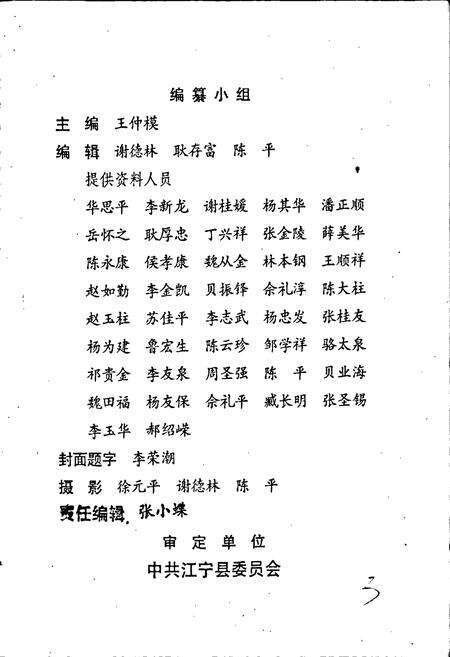 编纂小组
主 编 王仲模
编 辑 谢德林 耿存富 陈 平
提供资料人员
华思平 李新龙 谢桂媛 杨其华 潘正顺
岳怀之 耿厚忠 丁兴祥 张金陵 薛美华
陈永康 侯孝康 魏从金 林本钢 王顺祥
赵如勤 李金凯 贝振铎 佘礼淳 陈大柱
赵玉柱 苏佳平 李志武 杨忠发 张桂友
杨为建 鲁宏生 陈云珍 邹学祥 骆太泉
祁贵金 李友泉 周圣强 陈 平 贝业海
魏田福 杨友保 佘礼平 臧长明 张圣锡
李玉华 郝绍嵘
封面题字 李荣潮
摄 影 徐元平 谢德林 陈 平
责任编辑 张小嵘
审定单位
中共江宁县委员会
3